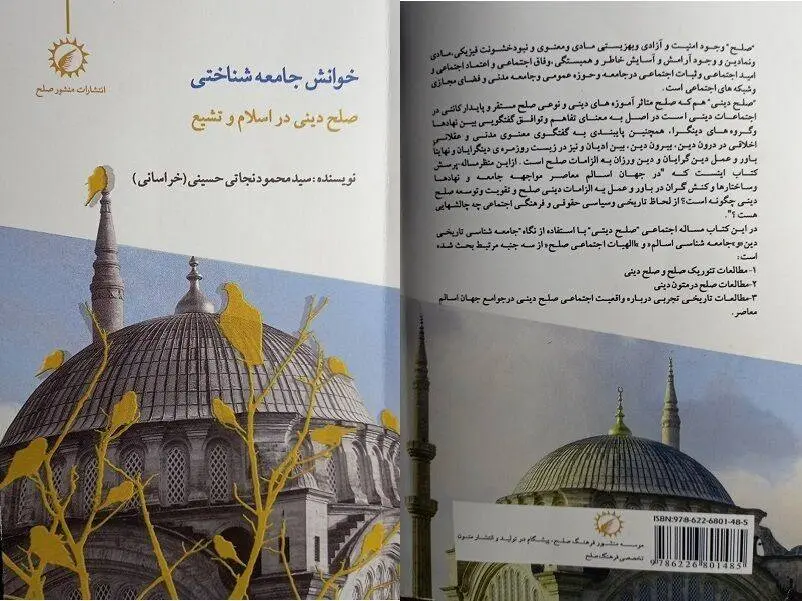 انتشارات منشور صلح
خوانش جامعه شناختی
صلح دینی در اسلام و تشیع
نویسنده: سیدمحمودنجاتی حسینی (خراسانی)
"صلح" وجود امنیت و آزادی وبهزیستی مادی ومعنوی و نبودخشونت فیزیکی،مـادی
ونمادین و وجود آرامش و آسایش خاطر و همبستگی،وفاق اجتماعی و اعتماد اجتماعی و
امید اجتماعی و ثبات اجتماعی درجامعه و حوزه عمومی وجامعه مدنی و فضای مجازی
وشبکه های اجتماعی است.
"صلح دینی" هم که صلح متاثر آموزه های دینی و نوعی صلح مستقر و پایدارکانتی در
اجتماعات دینی است در اصول به معنای تفاهم وتوافق گفتگویی بین نهادها
وگروه های دینگرا، همچنین پایبندی به گفتگوی معنوی مدنی و عقلانی
اخلاقی در درون دین، بیرون دین، بین ادیان و نیز در زیست روزمره ی دینگرایان و نهایتا
باور و عمل دین گرایان و دین ورزان به الزامات صلح است . ازاین منظرمساله/پرسش
کتاب اینست که "در جهان اسالم معاصر مواجهه جامعه و نهادها
وساختارها و کنش گران در باور و عمل به الزامات دینی صلح و تقویت وتوسعه صلح
دینی چگونه است؟ از لحاظ تاریخی وسیاسی حقوقی و فرهنگی اجتماعی چه چالشهایی
هست ؟".
در این کتاب مساله اجتماعی "صلح دینی" با استفاده از نگاه "جامعه شناسی تاریخی
دین«و»جامعه شناسی اسالم» و «الهیات اجتماعی صلح» از سه جنبه مرتبط بحث شده
است:
۱- مطالعات تئوریک صلح و صلح دینی
۲- مطالعات صلح درمتون دینی
۳- مطالعات تاریخی تجربی درباره واقعیت اجتماعی صلح دینی درجوامع جهان اسالم
معاصر.
موسسه منشور فرهنگ صلح، پیشگام در تولید و انتشار متون
تخصصی فرهنگ صلح
ISBN:978-622-6801-48-5
9 786226 801485